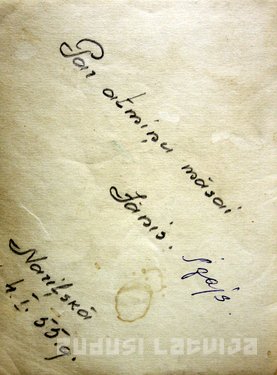 Par atmiņu māsai
Jānis. Igajs.
Nariļskā
4.I.55g.
zudusi Latvija